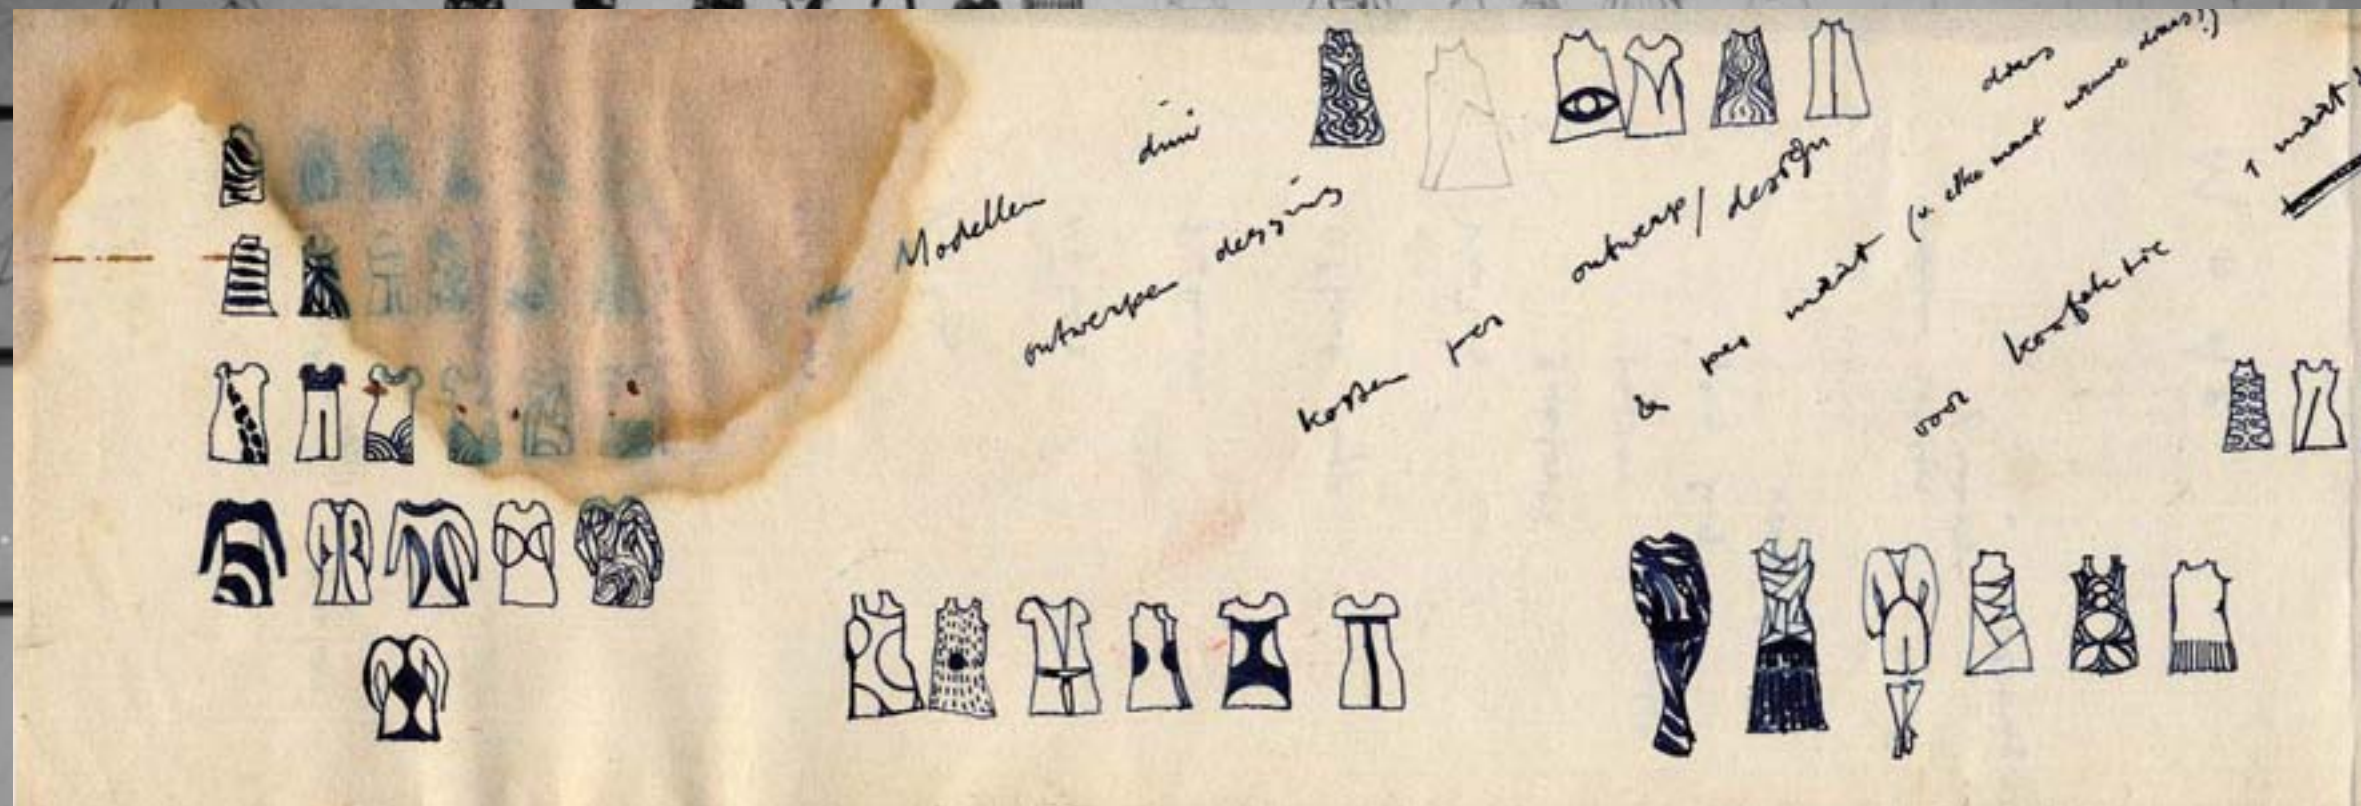 Modellen
ontwerpen dessins
kosten per ontwerp / design
& per maat (u elke maat nieuwe
voor konfektie
1 maat